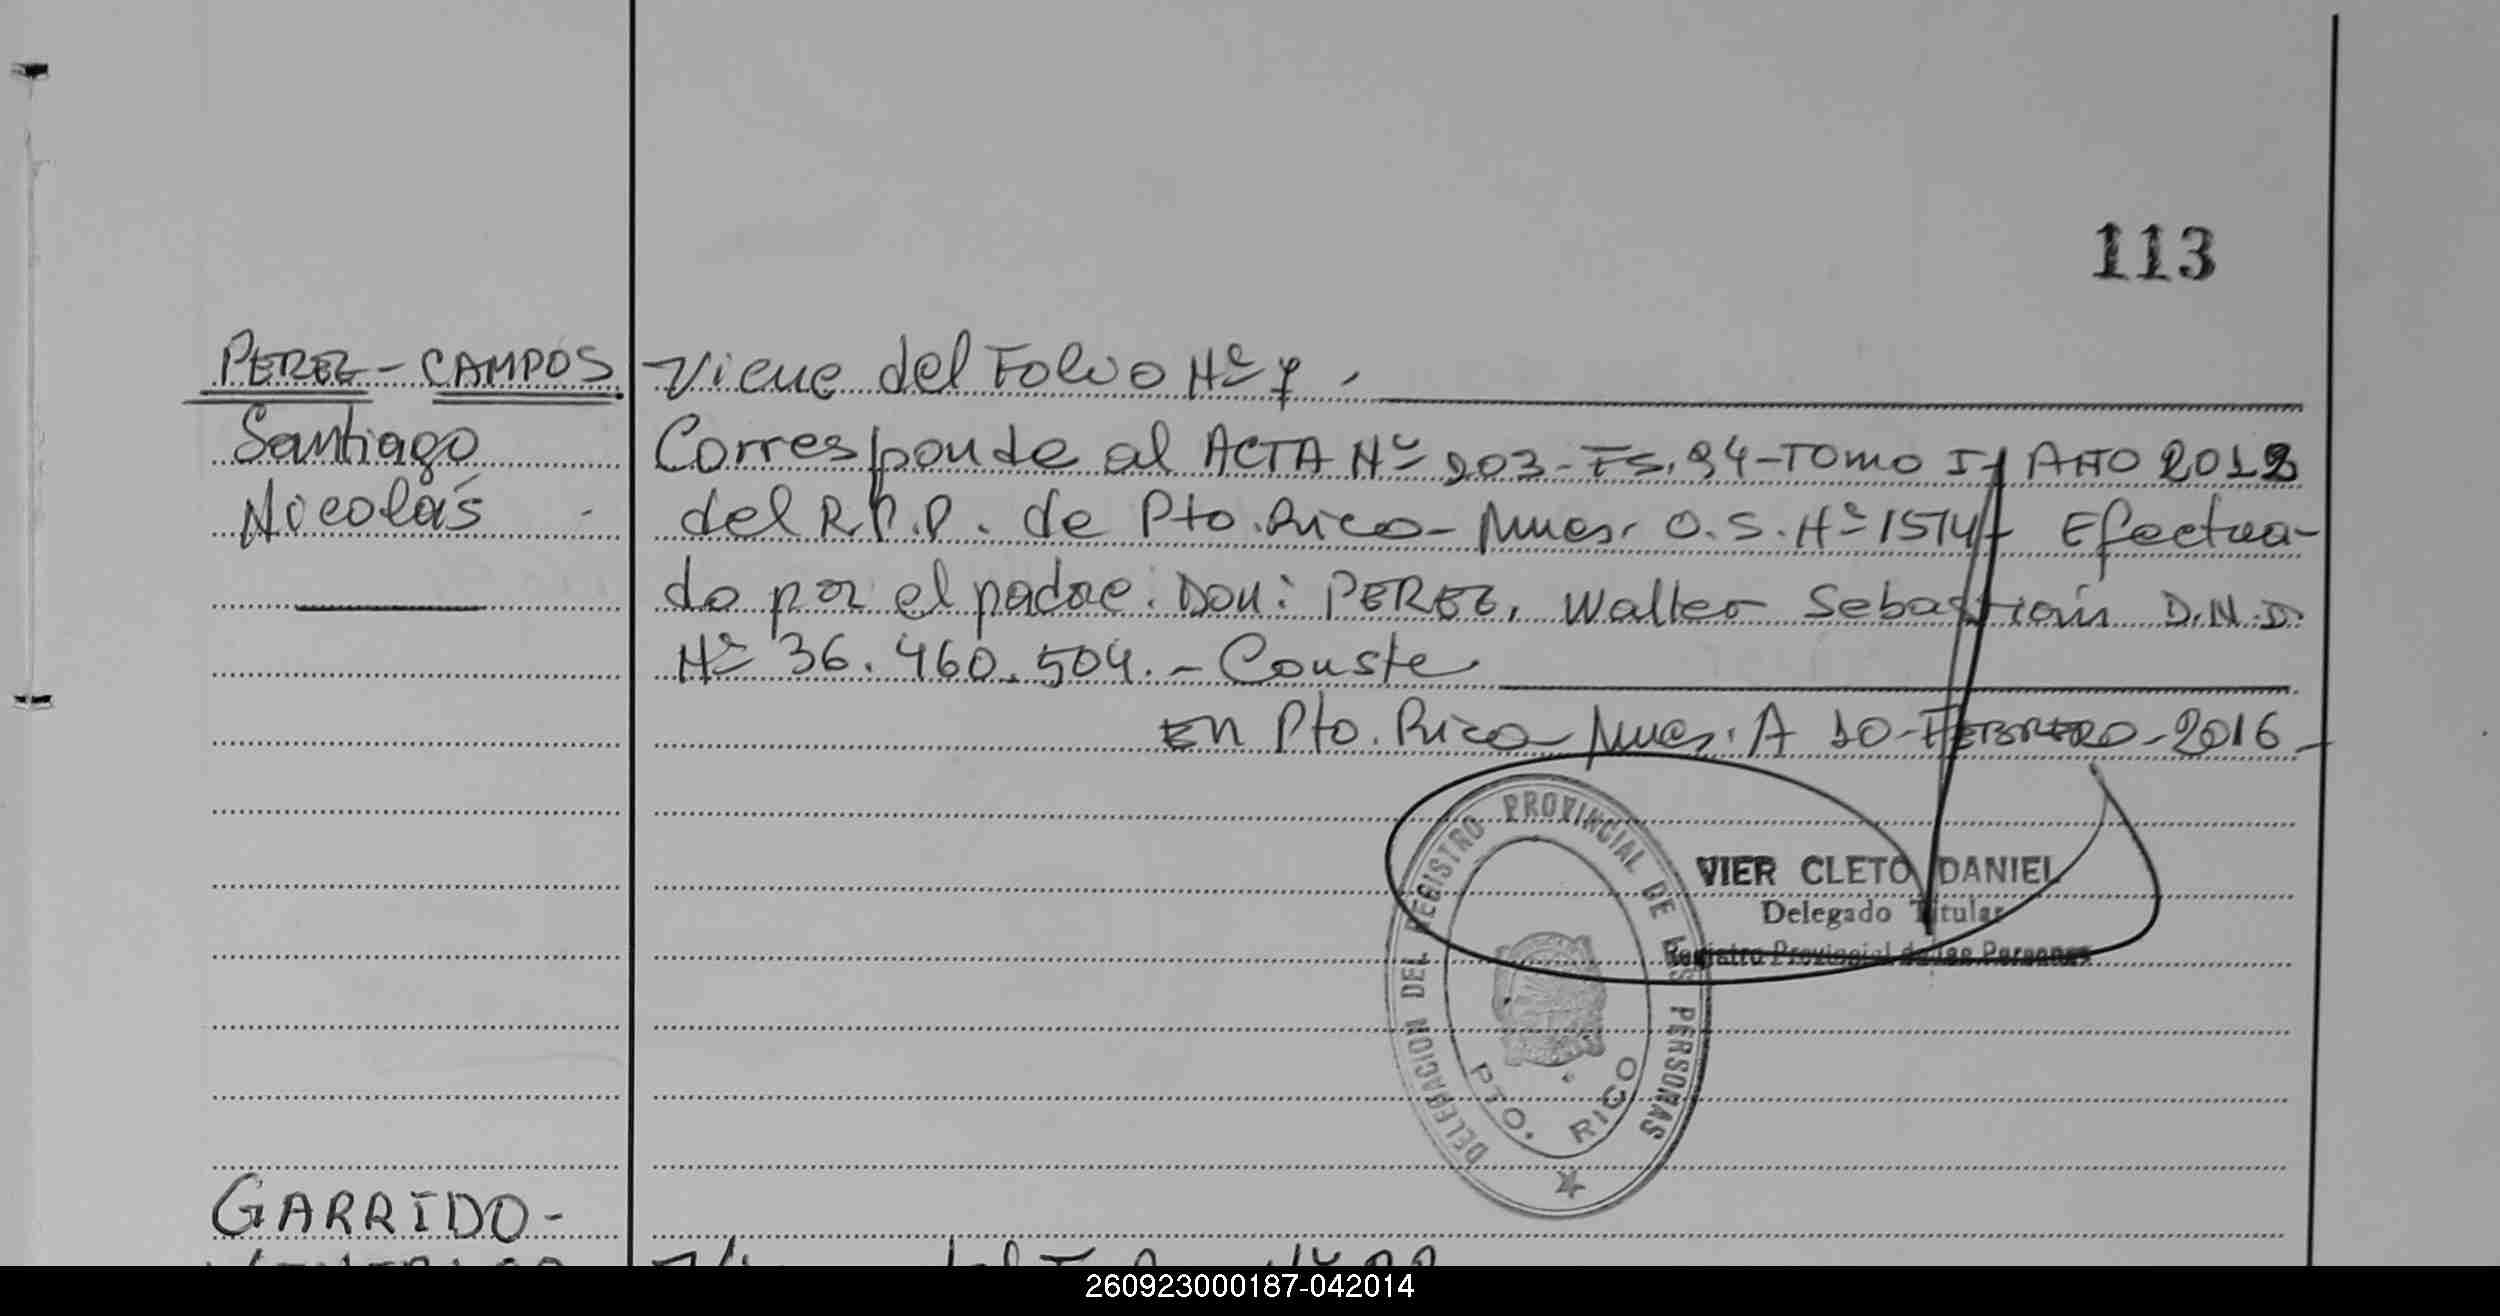 113
PEREZ - CAMPOS.
Santiago
Nicolás -
Viene del Folio Nº 7.
Corresponde al ACTA Nº 203 - Fs. 94 - TOMO I - AÑO 2012
del R.P.P. de Pto. Rico - Mnes. O.S. Nº 1514 - Efectua-
do por el padre: Don: PEREZ, Walter Sebastián D.N.I.
Nº 36.460.504. - Conste
En Pto. Rico - Mnes. A 10 - FEBRERO - 2016 -
DELEGACION DEL REGISTRO PROVINCIAL DE LAS PERSONAS
PTO. RICO
VIER CLETO DANIEL
Delegado Titular
Registro Provincial de las Personas
GARRIDO -
260923000187-042014